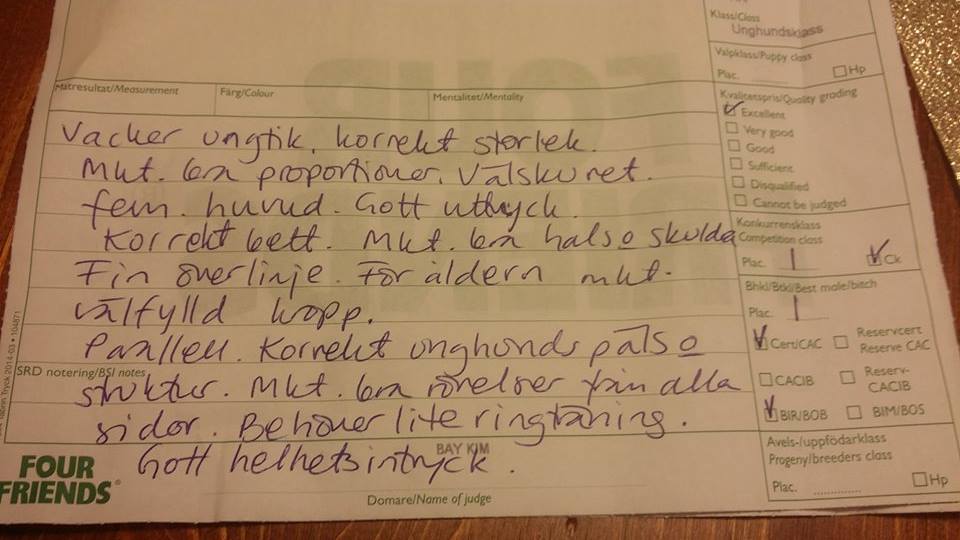 Klass/Class
Unghundsklass
Valpklass/Puppy class
Plac. Hp
Mätresultat/Measurement Färg/Colour Mentalitet/Mentality
Kvalitetspris/Quality grading
Excellent
Very good
Good
Sufficient
Disqualified
Cannot be judged
Vacker ungtik, korrekt storlek.
Mkt. bra proportioner. Välskuret.
fem. huvud. Gott uttryck.
Korrekt bett. Mkt. bra hals o skuldra
Fin överlinje. För åldern mkt.
välfylld kropp.
Parallell. Korrekt unghunds päls o
struktur. Mkt. bra rörelser från alla
sidor. Behöver lite ringträning.
Gott helhetsintryck.
Konkurrensklass
Competition class
Plac. 1 Ck
Bhkl/Btkl/Best male/bitch
Plac. 1
Cert/CAC Reservcert
Reserve CAC
CACIB Reserv-
CACIB
BIR/BOB BIM/BOS
Avels-/uppfödarklass
Progeny/breeders class
Plac. ............ Hp
SRD notering/BSI notes
Tryck 2014-03 • 104871
BAY KIM
Domare/Name of judge
FOUR
FRIENDS®